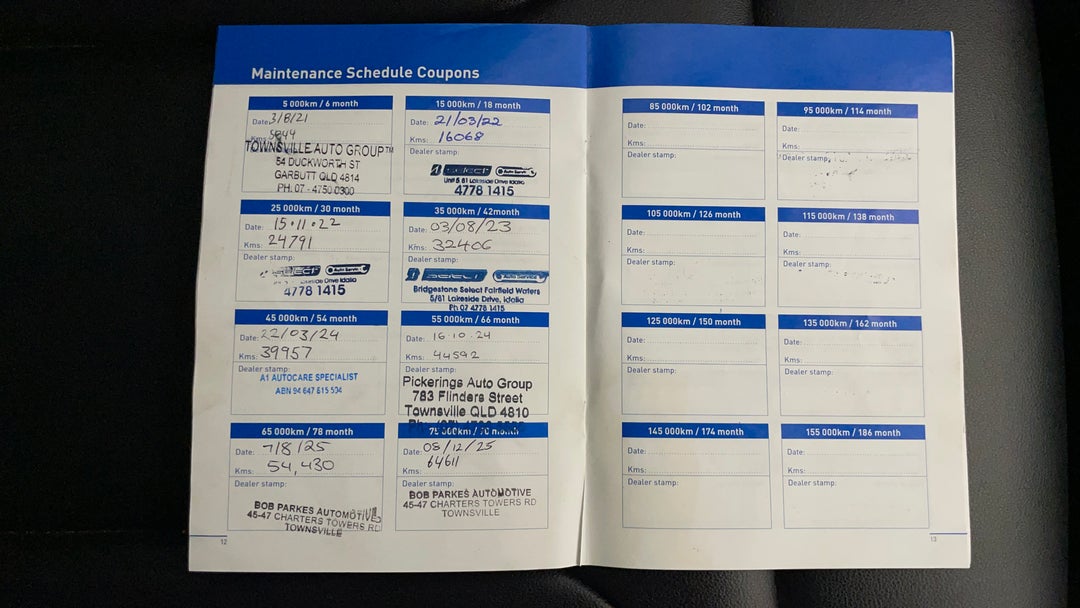 Maintenance Schedule Coupons
5 000km / 6 month
Date: 3/8/21
Kms:
TOWNSVILLE AUTO GROUP™
54 DUCKWORTH ST
GARBUTT QLD 4814
PH: 07 - 4750 0300
15 000km / 18 month
Date: 21/03/22
Kms: 16068
Dealer stamp:
SELECT Auto Service
Unit 5/81 Lakeside Drive Idalia
4778 1415
25 000km / 30 month
Date: 15.11.22
Kms: 24791
Dealer stamp:
SELECT Auto Service
Drive Idalia
4778 1415
35 000km / 42month
Date: 03/08/23
Kms: 32406
Dealer stamp:
SELECT Auto Service
Bridgestone Select Fairfield Waters
5/81 Lakeside Drive, Idalia
Ph 07 4778 1415
45 000km / 54 month
Date: 22/03/24
Kms: 39957
Dealer stamp:
A1 AUTOCARE SPECIALIST
ABN 94 647 615 504
55 000km / 66 month
Date: 16.10.24
Kms: 44592
Dealer stamp:
Pickerings Auto Group
783 Flinders Street
Townsville QLD 4810
65 000km / 78 month
Date: 7/8/25
Kms: 54,430
Dealer stamp:
BOB PARKES AUTOMOTIVE
45-47 CHARTERS TOWERS RD
TOWNSVILLE
75 000km / 90 month
Date: 08/12/25
Kms: 64611
Dealer stamp:
BOB PARKES AUTOMOTIVE
45-47 CHARTERS TOWERS RD
TOWNSVILLE
12
85 000km / 102 month
Date:
Kms:
Dealer stamp:
95 000km / 114 month
Date:
Kms:
Dealer stamp:
105 000km / 126 month
Date:
Kms:
Dealer stamp:
115 000km / 138 month
Date:
Kms:
Dealer stamp:
125 000km / 150 month
Date:
Kms:
Dealer stamp:
135 000km / 162 month
Date:
Kms:
Dealer stamp:
145 000km / 174 month
Date:
Kms:
Dealer stamp:
155 000km / 186 month
Date:
Kms:
Dealer stamp:
13